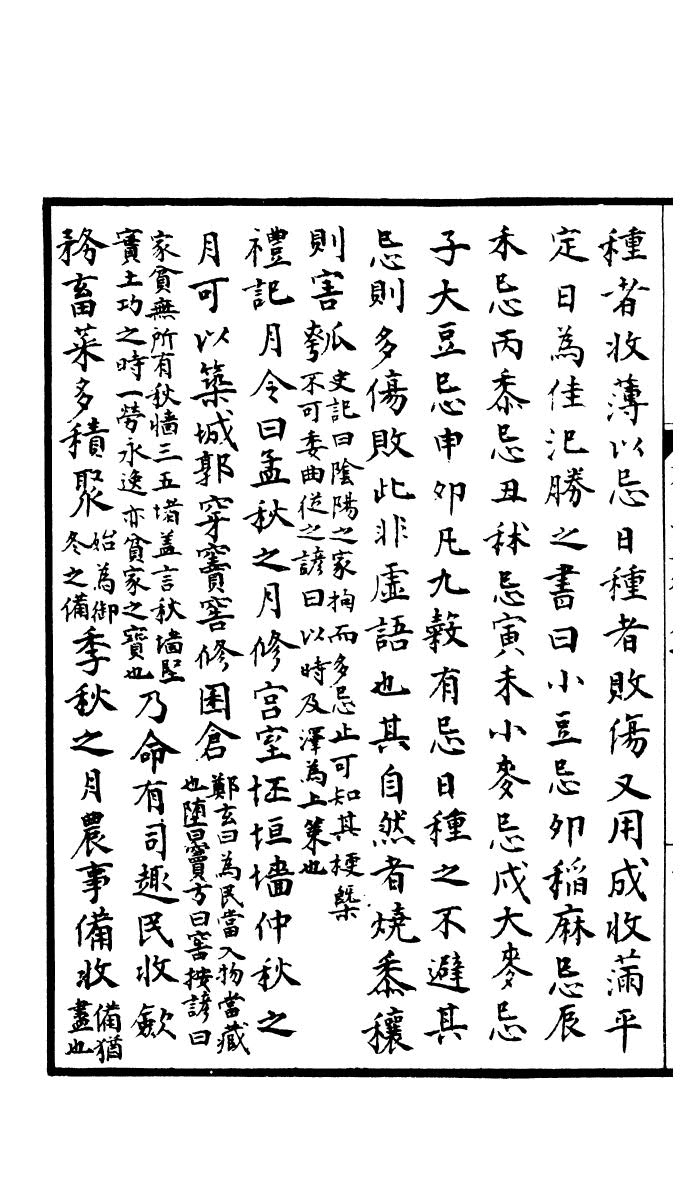 種者收薄以忌日種者敗傷又用成收滿平
定日為佳氾勝之書曰小豆忌卯稲麻忌辰
禾忌丙黍忌丑秫忌寅未小麥忌戌大麥忌
子大豆忌申卯凡九穀有忌日種之不避其
忌則多傷敗此非虛語也其自然者燒黍穰
則害瓠史記曰陰陽之家拘而多忌止可知其梗槩
不可委曲從之諺曰以時及澤為上策也
禮記月令曰孟秋之月修宮室坯垣墻仲秋之
月可以築城郭穿竇窖修囷倉鄭玄曰為民當入物當藏
也墮曰竇方曰窖按諺曰
家貧無所有秋墻三五堵盖言秋墻堅
實土功之時一勞永逸亦貧家之寶也乃命有司趣民收歛
務畜菜多積聚始為御
冬之備季秋之月農事備收備猶
盡也